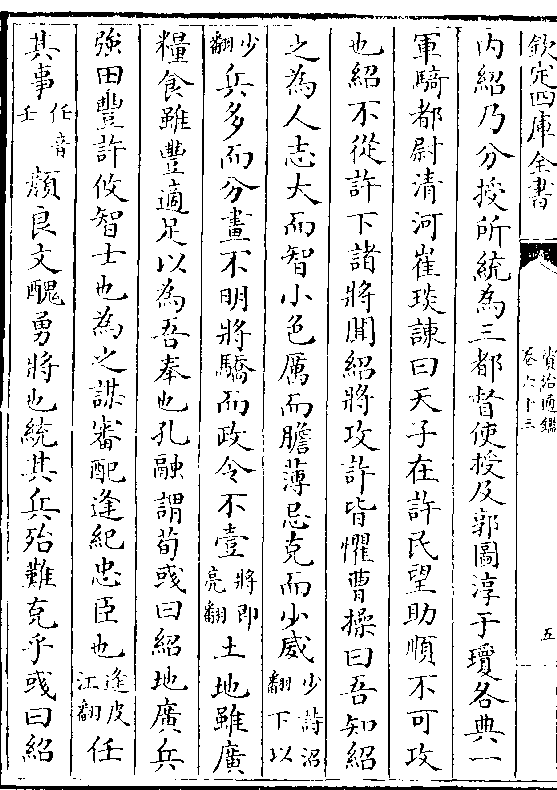 欽定四庫全書
資治通鑑
卷六十三
五
内紹乃分授所統為三都督使授及郭圖淳于瓊各典一
軍騎都尉清河崔琰諫曰天子在許民望助順不可攻
也紹不從許下諸將聞紹將攻許皆懼曹操曰吾知紹
之為人志大而智小色厲而膽薄忌克而少威少詩沼翻下以
少翻兵多而分畫不明將驕而政令不壹將即亮翻土地雖廣
糧食雖豐適足以為吾奉也孔融謂荀彧曰紹地廣兵
强田豐許攸智士也為之謀審配逢紀忠臣也逢皮江翻任
其事任音壬顔良文醜勇將也統其兵殆難克乎彧曰紹